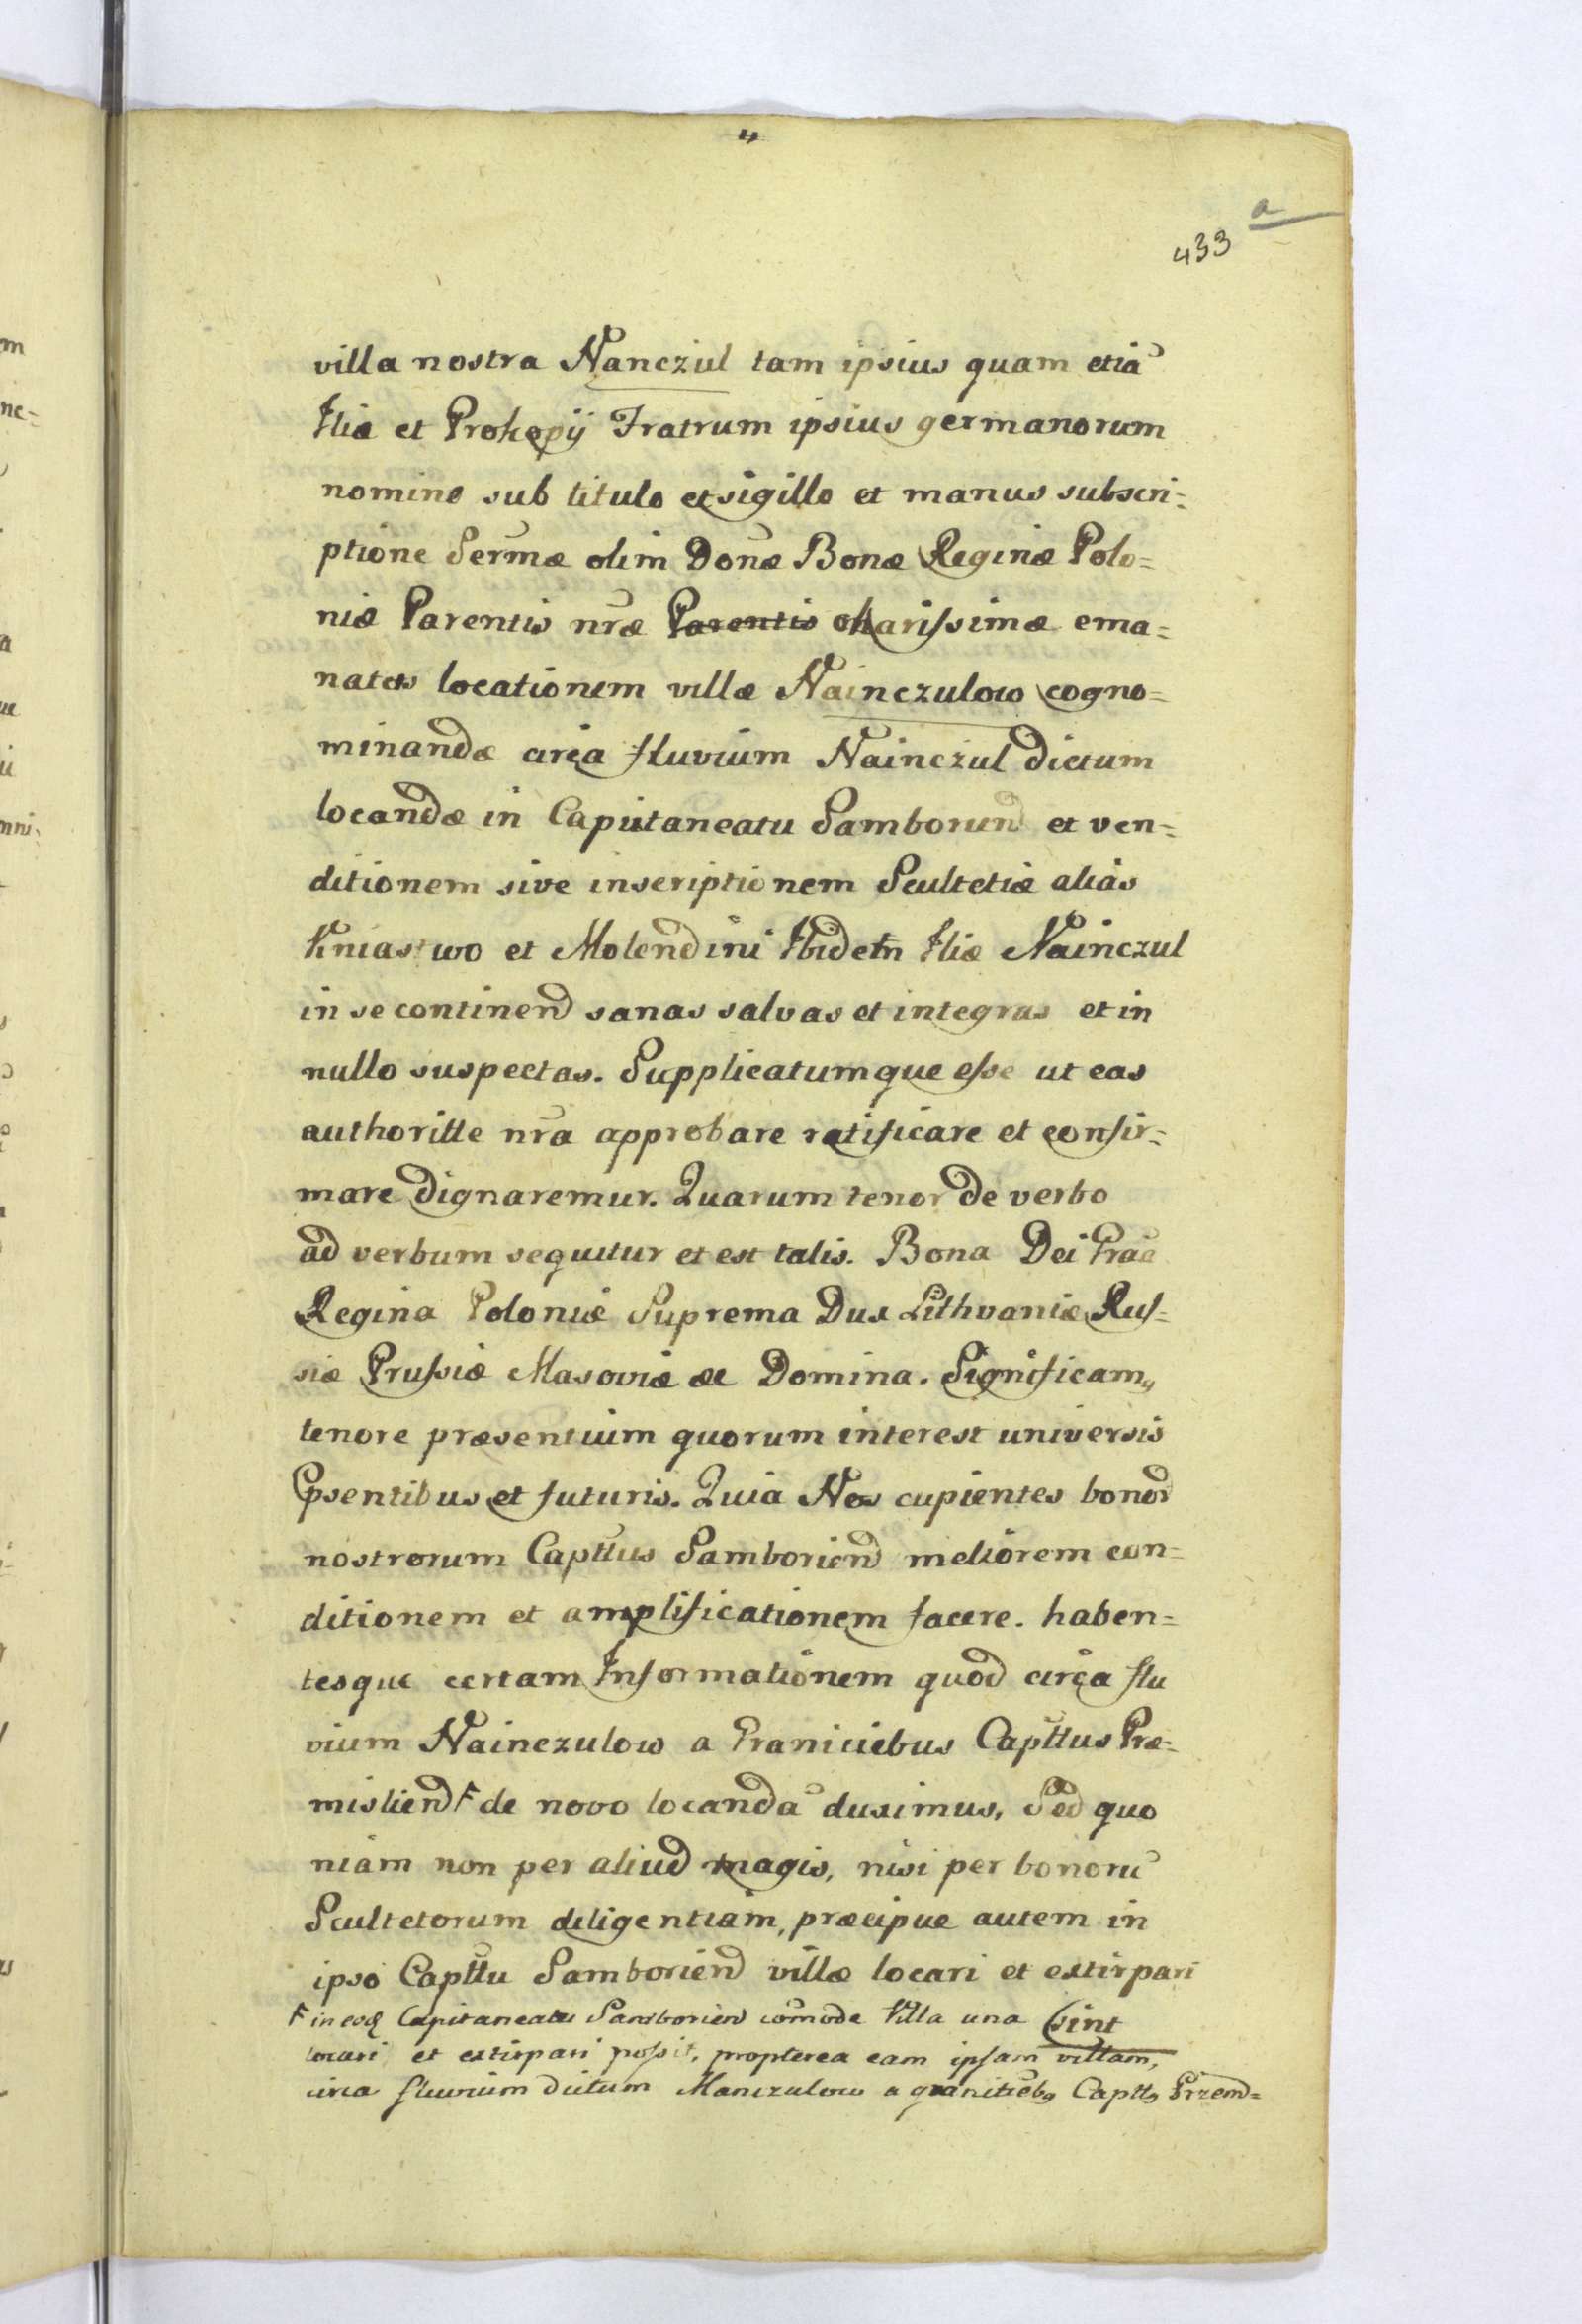 4
a
433
villa nostra Nanczul tam ipsius quam etiã
Iliæ et Prokopÿ Fratrum ipsius germanorum
nomine sub titulo et sigillo et manus subscri=
ptione Sermæ olim Donæ Bonæ Reginæ Polo=
niæ Parentis nræ Parentis charissimæ ema=
natas locationem villæ Nainczulow cogno=
minandæ circa fluvium Nainczul dictum
locandæ in Capitaneatu Samborien et ven=
ditionem sive inscriptionem Scultetiæ alias
Kniastwo et Molendini Ibidem Iliæ Nainczul
in se continen sanas salvas et integras et in
nullo suspectas. Supplicatumque esse ut eas
authoritte nra approbare ratificare et confir=
mare dignaremur. Quarum tenor de verbo
ad verbum sequitur et est talis. Bona Dei Graa
Regina Poloniæ Suprema Dux Lithvaniæ Rus=
siæ Prussiæ Masoviæ æc Domina. Significam,
tenore præsentium quorum interest universis
psentibus et futuris. Quia Nos cupientes bonor
nostrorum Capttus Samborien meliorem con=
ditionem et amplificationem facere. haben=
tesque certam Informationem quod circa flu
vium Nainczulow a Graniciebus Capttus Præ=
mislien F de novo locandã duximus, Sed quo
niam non per aliud magis, nisi per bonorũ
Scultetorum diligentiam, præcipue autem in
ipso Capttu Samborien villæ locari et extirpari
F in eod Capitaneatu Samborien comode Villa una sint
locari et extirpari possit, propterea eam ipsam villam,
circa fluvium dictum Manczulow a granitieb9 Captt9 Przem=